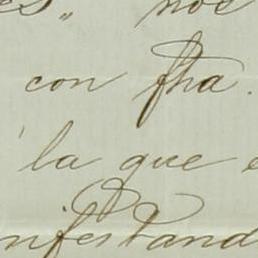 es,, nos
con fha.
la que e
nifestand